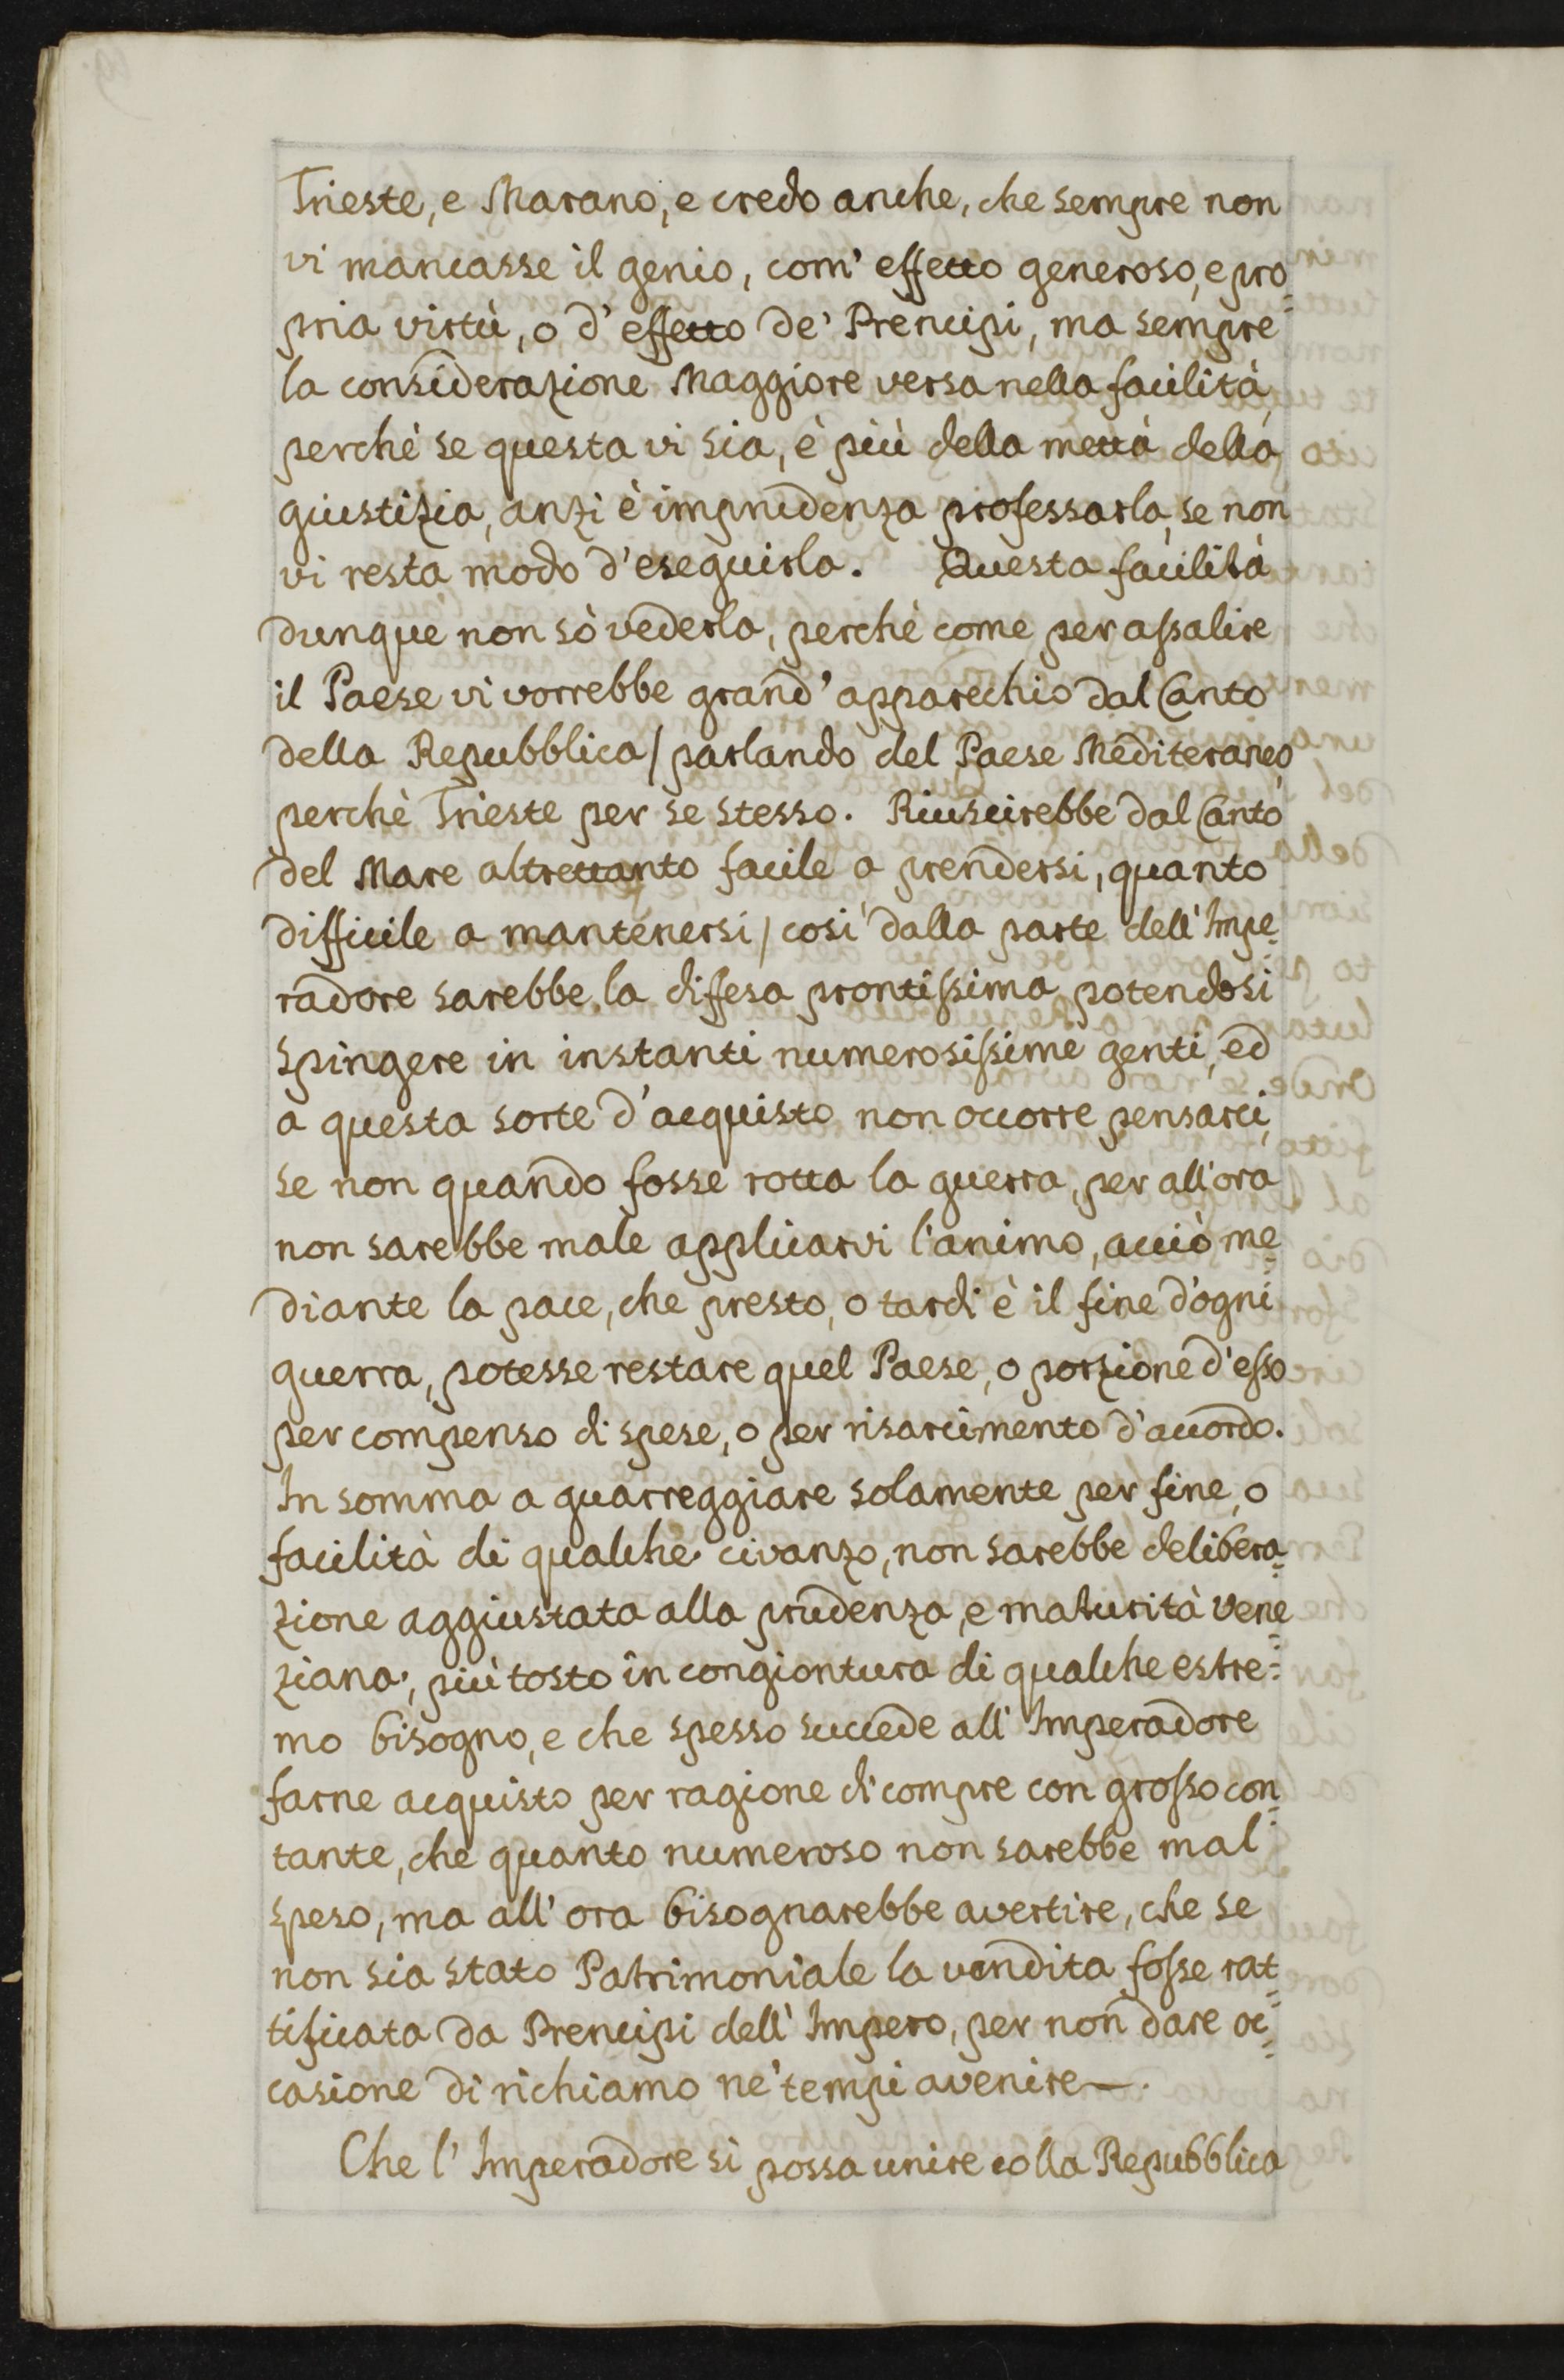 Trieste, e Marano, e credo anche, che sempre non
vi mancasse il genio, com' effetto generoso, e pro=
pria virtù, o d' effetto de' Prencipi, ma sempre
la considerazione Maggiore versa nella facilità,
perchè se questa vi sia, è più della mettà della
giustizia, anzi è imprudenza professarla, se non
vi resta modo d'eseguirla. Questa facilità
dunque non sò vederla, perchè come per assalire
il Paese vi vorrebbe grand' apparecchio dal Canto
della Repubblica / parlando del Paese Mediteraneo,
perchè Trieste per se stesso. Riuscirebbe dal Canto
del Mare altrettanto facile a prendersi, quanto
difficile a mantenersi / così dalla parte dell' Impe=
radore sarebbe la diffesa prontissima potendosi
spingere in instanti numerosissime genti, ed
a questa sorte d'acquisto non occorre pensarci,
se non quando fosse rotta la guerra, per all'ora
non sarebbe male applicarvi l'animo, acciò me=
diante la pace, che presto, o tardi è il fine d'ogni
guerra, potesse restare quel Paese, o porzione d'esso
per compenso di spese, o per risarcimento d'accordo.
In somma a guarreggiare solamente per fine, o
facilità di qualche civanzo, non sarebbe delibera=
zione aggiustata alla prudenza, e maturità Vene=
ziana; più tosto in congiontura di qualche estre=
mo bisogno, e che spesso succede all' Imperadore
farne acquisto per ragione di compre con grosso con=
tante, che quanto numeroso non sarebbe mal
speso, ma all' ora bisognarebbe avertire, che se
non sia stato Patrimoniale la vendita fosse rat=
tificata da Prencipi dell' Impero, per non dare oc=
casione di richiamo ne' tempi avenire.
Che l' Imperadore si possa unire colla Repubblica